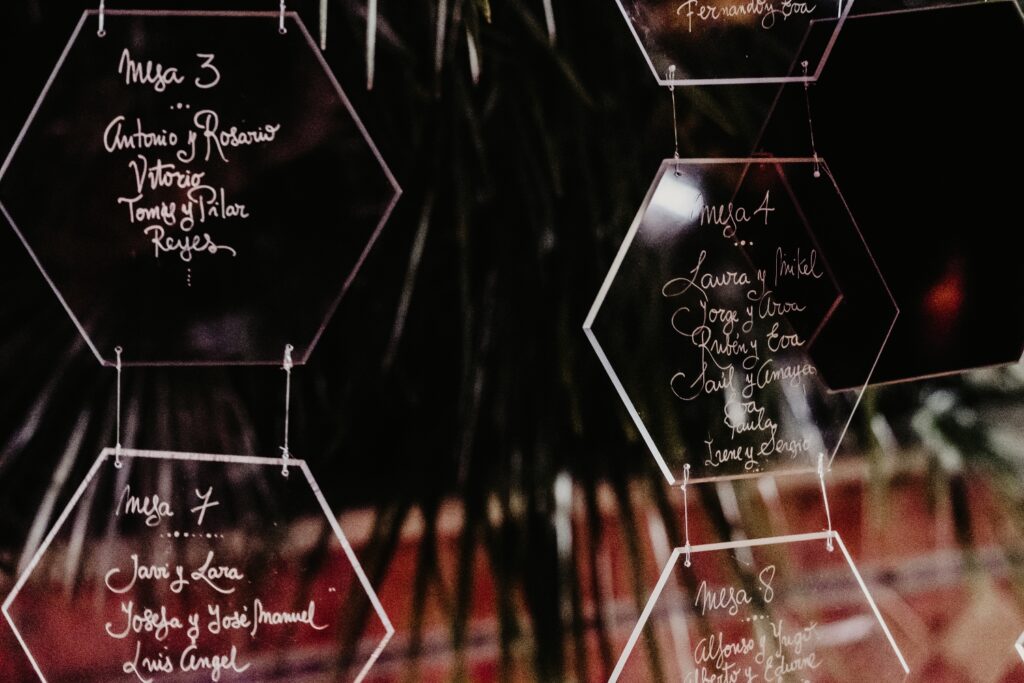 Mesa 3
Antonio y Rosario
Vitorio
Tomas y Pilar
Reyes
Mesa 7
Javi y Lara
Josefa y José Manuel
Luis Angel
Fernando y Eva
Mesa 4
Laura y Mikel
Jorge y Arva
Rubén y Eva
Saúl y Amaya
Eva
Paula
Irene y Sergio
Mesa 8
Alfonso y Yugo
Alberto y Edurne